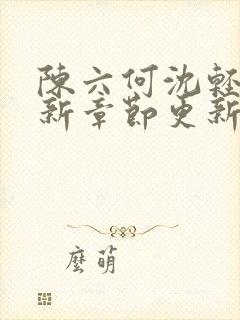 陳六何沈輕
新章節更新
麼萌